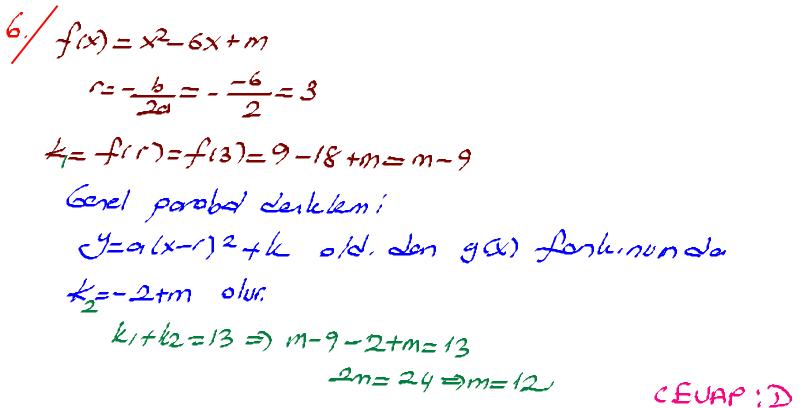 6./ f(x) = x² - 6x + m
r = -b/2a = - -6/2 = 3
k₁ = f(r) = f(3) = 9 - 18 + m = m - 9
Genel parabol denklemi
y = a(x-r)² + k old. dan g(x) fonk.nunda
k₂ = -2 + m olur.
k₁ + k₂ = 13 ⇒ m - 9 - 2 + m = 13
2m = 24 ⇒ m = 12
CEVAP : D